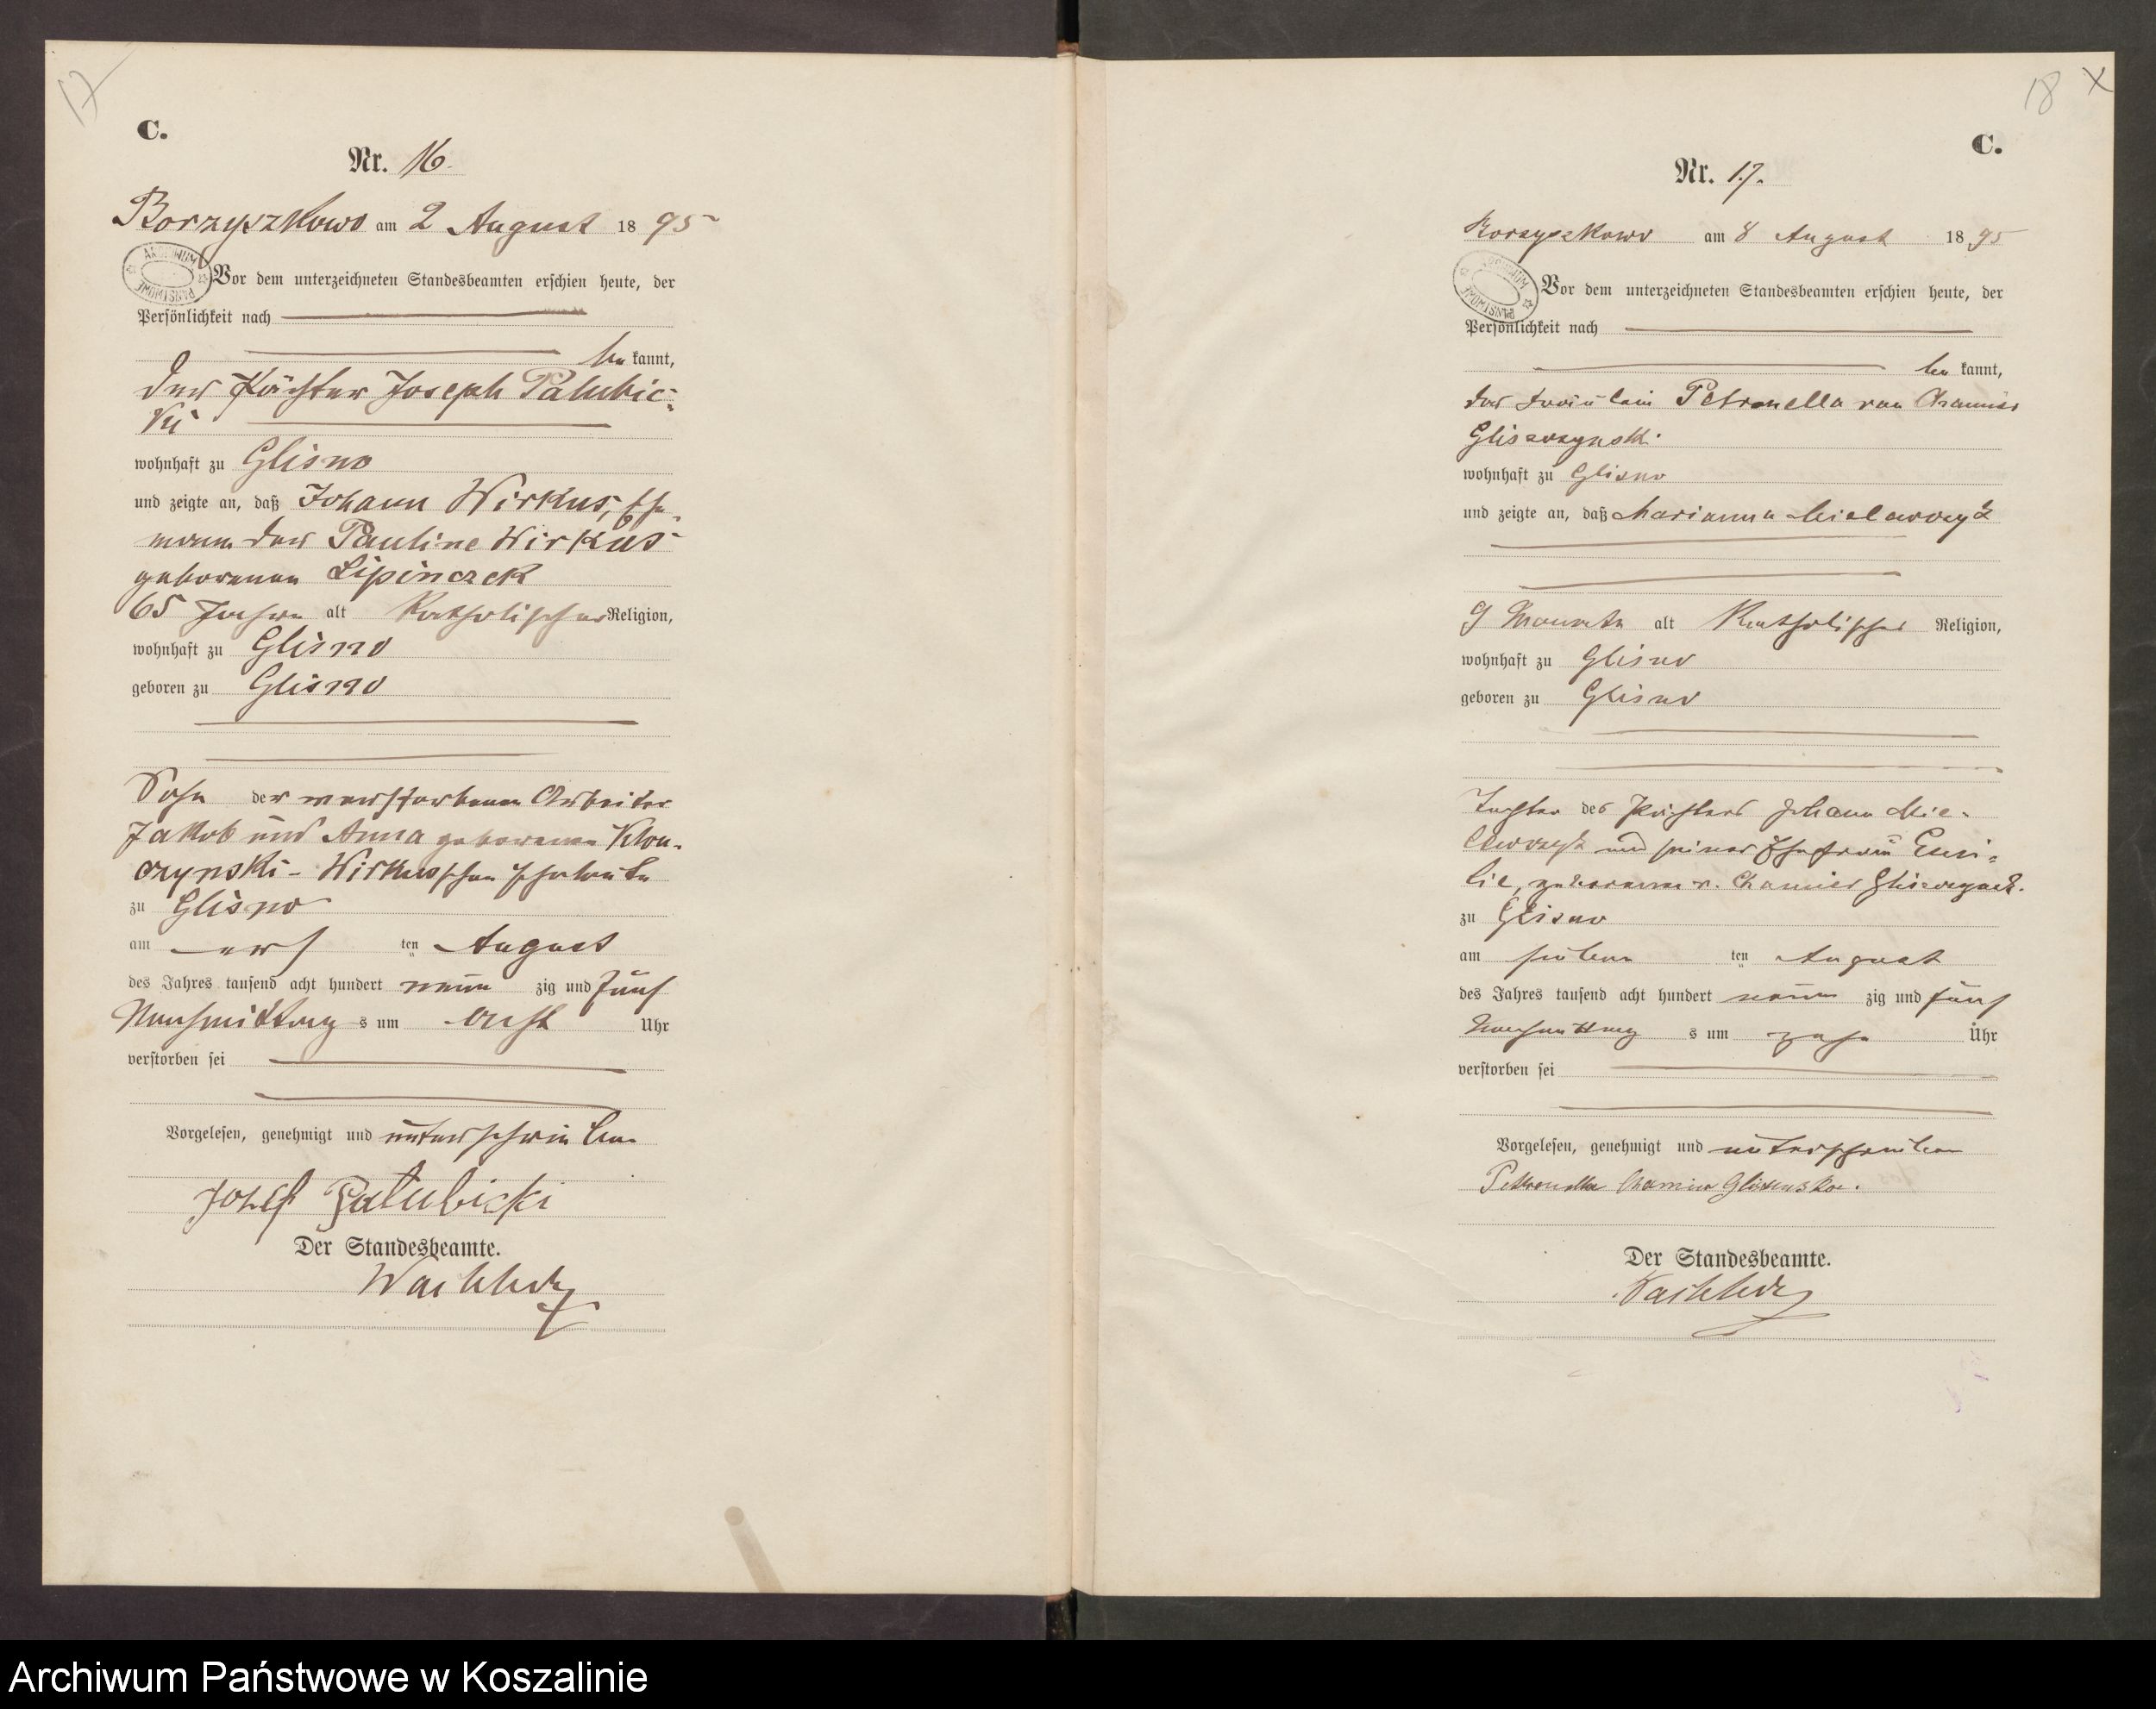 17
C.
Nr. 16
Borzyszkowo am 2 August 1895
ARCHIWUM PAŃSTWOWE
Vor dem unterzeichneten Standesbeamten erschien heute, der
Persönlichkeit nach
bekannt,
der Pächter Joseph Palubic-
ki
wohnhaft zu Glisno
und zeigte an, daß Johann Wirkus, Ehe-
mann der Pauline Wirkus
geborenen Lipinczek
65 Jahre alt katholischer Religion,
wohnhaft zu Glisno
geboren zu Glisno
Sohn der verstorbenen Arbeiter
Jakob und Anna geborenen Klon-
czynski-Wirkusschen Eheleute
zu Glisno
am ersten August
des Jahres tausend acht hundert neunzig und fünf
Nachmittags um acht Uhr
verstorben sei
Vorgelesen, genehmigt und unterschrieben
Josef Palubicki
Der Standesbeamte.
18
C.
Nr. 17.
Borzyszkowo am 8 August 1895
ARCHIWUM PAŃSTWOWE
Vor dem unterzeichneten Standesbeamten erschien heute, der
Persönlichkeit nach
bekannt,
das Fräulein Petronella von Chamier
Gliszczynski
wohnhaft zu Glisno
und zeigte an, daß Marianna
9 Monate alt katholischer Religion,
wohnhaft zu Glisno
geboren zu Glisno
Tochter des Pächters Johann Mie-
und seiner Ehefrau Emi-
lie, geborenen v. Chamier
zu Glisno
am siebenten August
des Jahres tausend acht hundert neunzig und fünf
Nachmittags um zehn Uhr
verstorben sei
Vorgelesen, genehmigt und unterschrieben
Petronella Chamier
Der Standesbeamte.
Archiwum Państwowe w Koszalinie